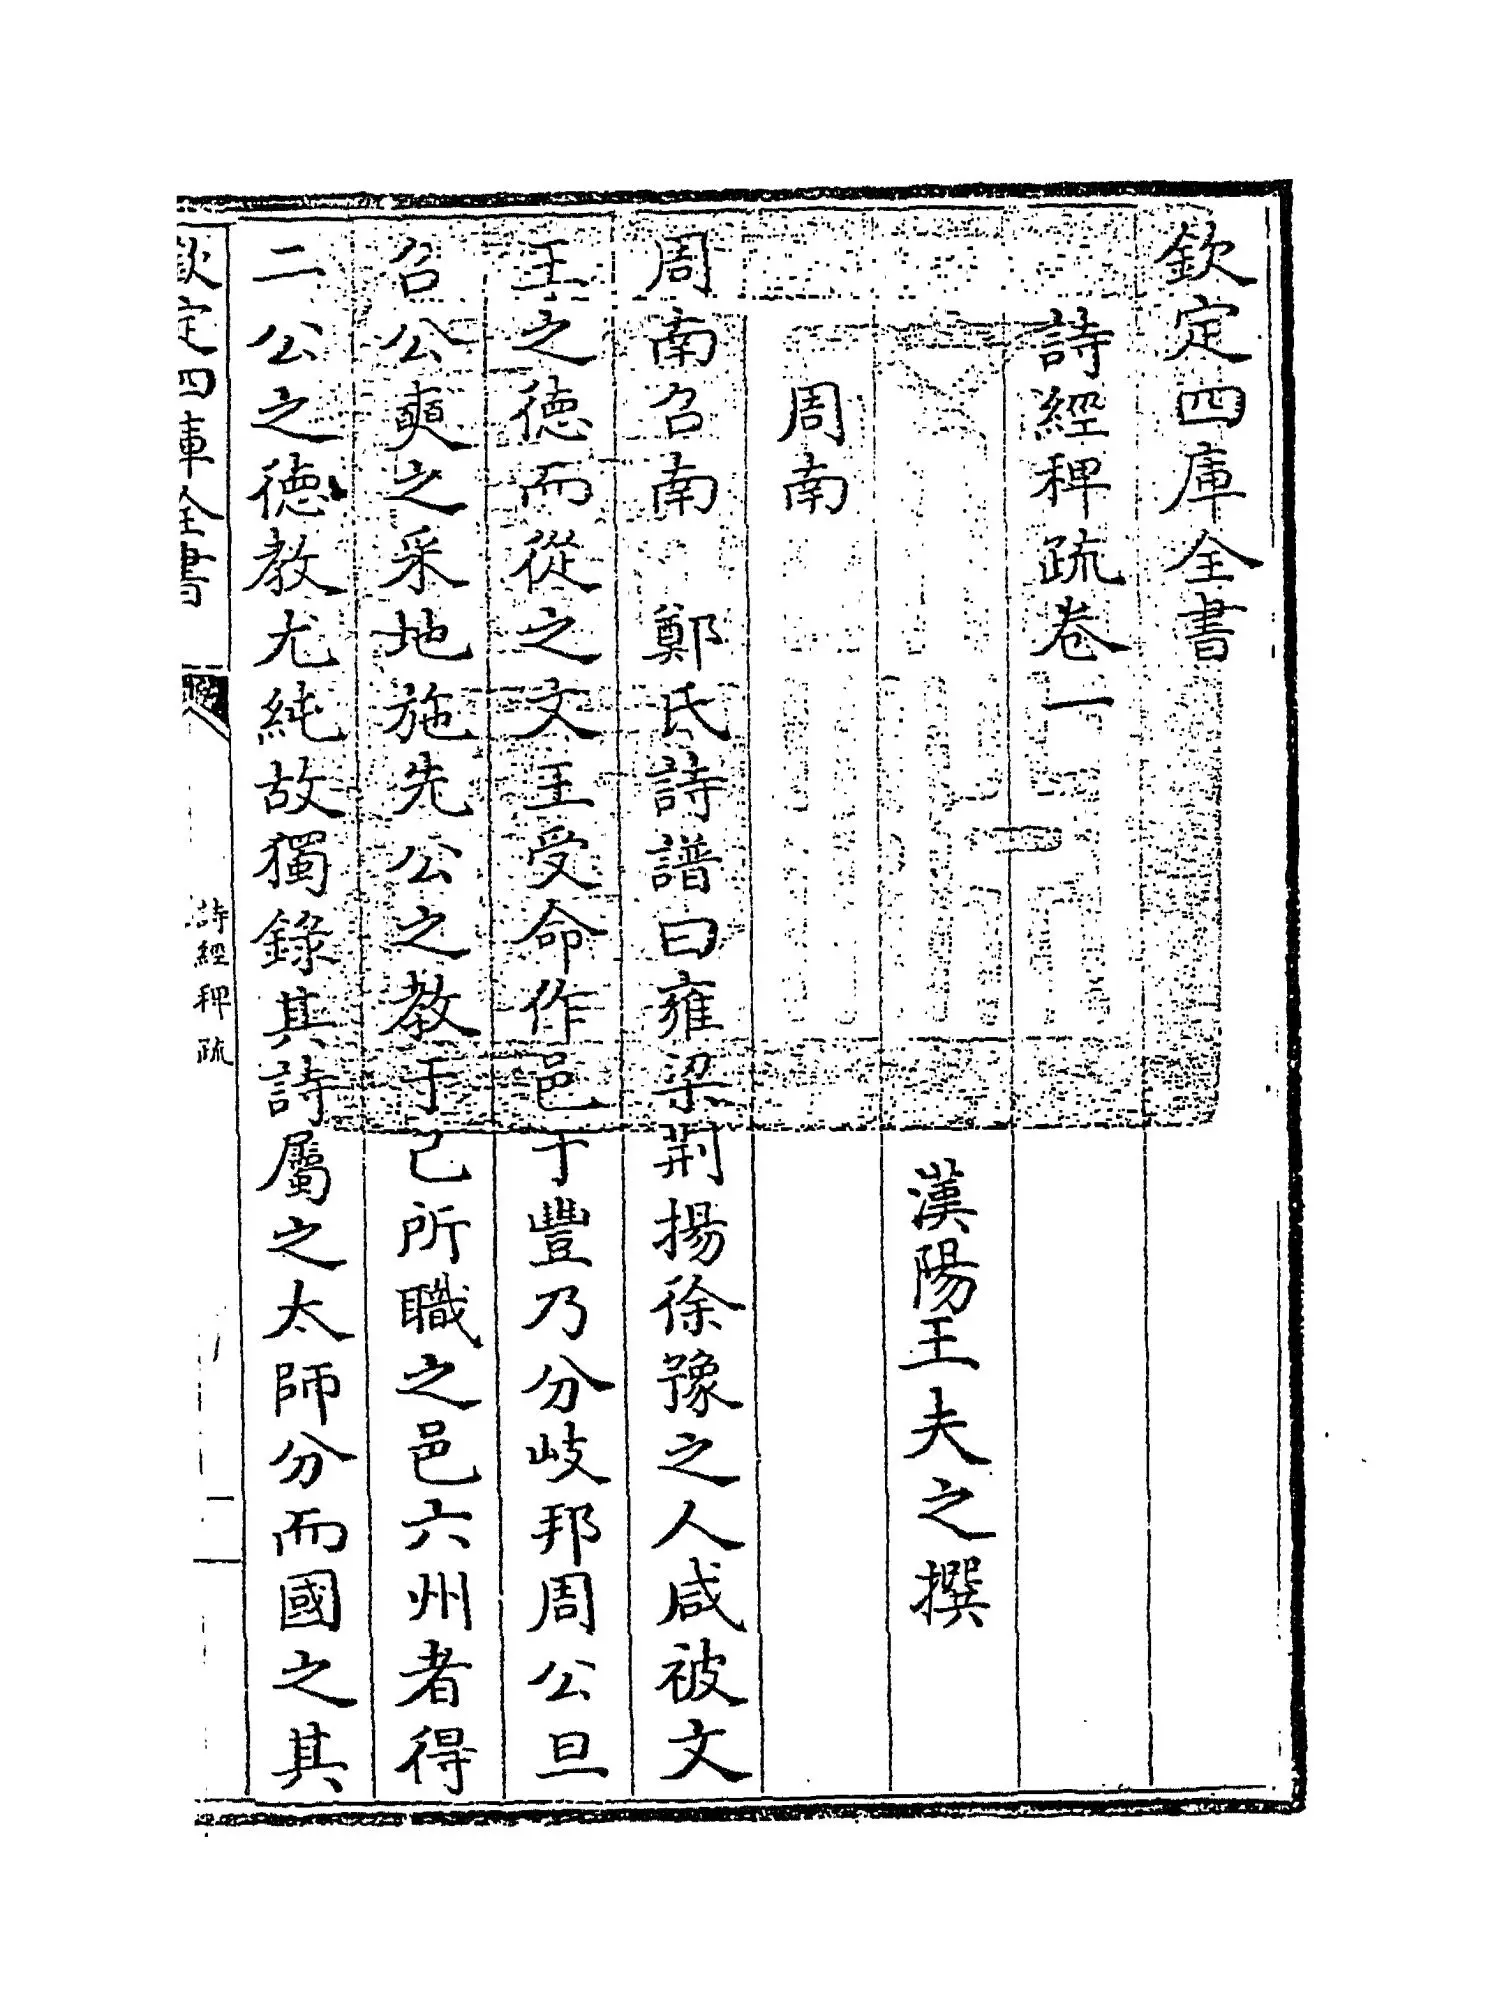 欽定四庫全書
詩經稗疏卷一
漢陽王夫之撰
周南
周南召南　鄭氏詩譜曰雍梁荆揚徐豫之人咸被文
王之德而從之文王受命作邑于豐乃分岐邦周公旦
召公奭之采地施先公之教于己所職之邑六州者得
二公之德教尤純故獨錄其詩屬之太師分而國之其
欽定四庫全書
詩經稗疏
一